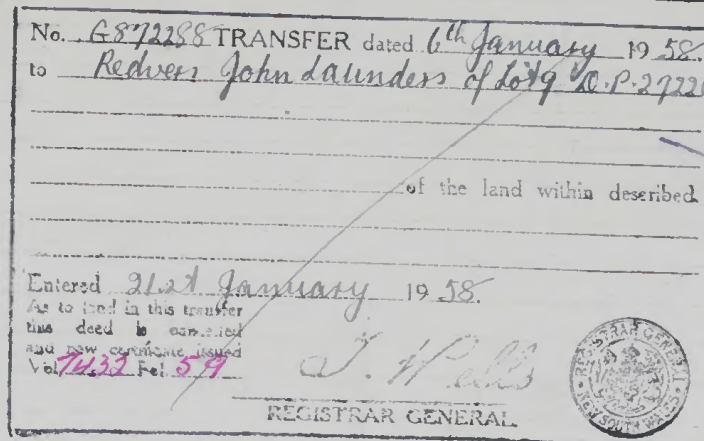 No. G872288 TRANSFER dated 6th January 1958.
to Redvers John Launders of Lot 9 D.P. 2722
of the land within described.
Entered 21st January 1958.
As to land in this transfer
this deed is cancelled
and new certificate issued
Vol. 7432 Fol. 59
J. Wells
REGISTRAR GENERAL
REGISTRAR GENERAL
NEW SOUTH WALES